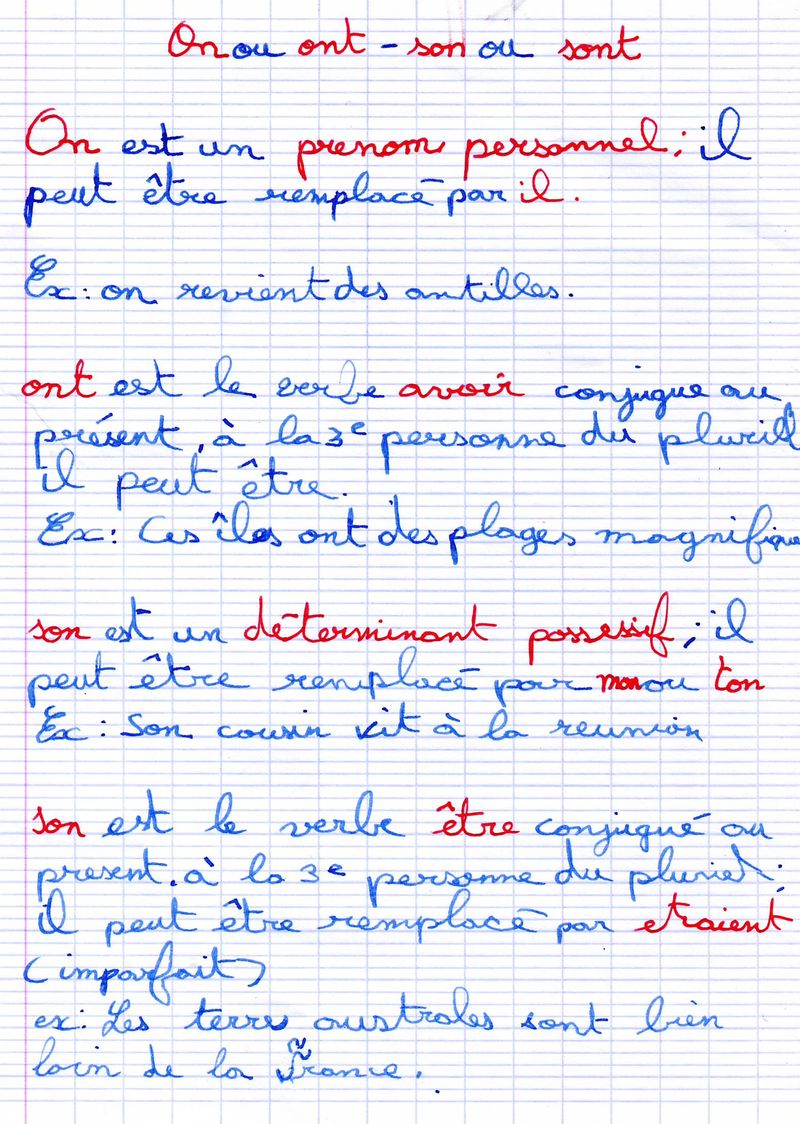 On ou ont - son ou sont
On est un prenom personnel; il
peut être remplacé par il.
Ex: on revient des antilles.
ont est le verbe avoir conjugue au
présent, à la 3e personne du pluriel
il peut être.
Ex: Ces îles ont des plages magnifique
son est un déterminant possessif; il
peut être remplacé par mon ou ton
Ex: Son cousin vit à la reunion
son est le verbe être conjugué au
present. à la 3e personne du pluriel;
il peut être remplacé par etaient
(imparfait)
ex: Les terres australes sont bien
loin de la France.